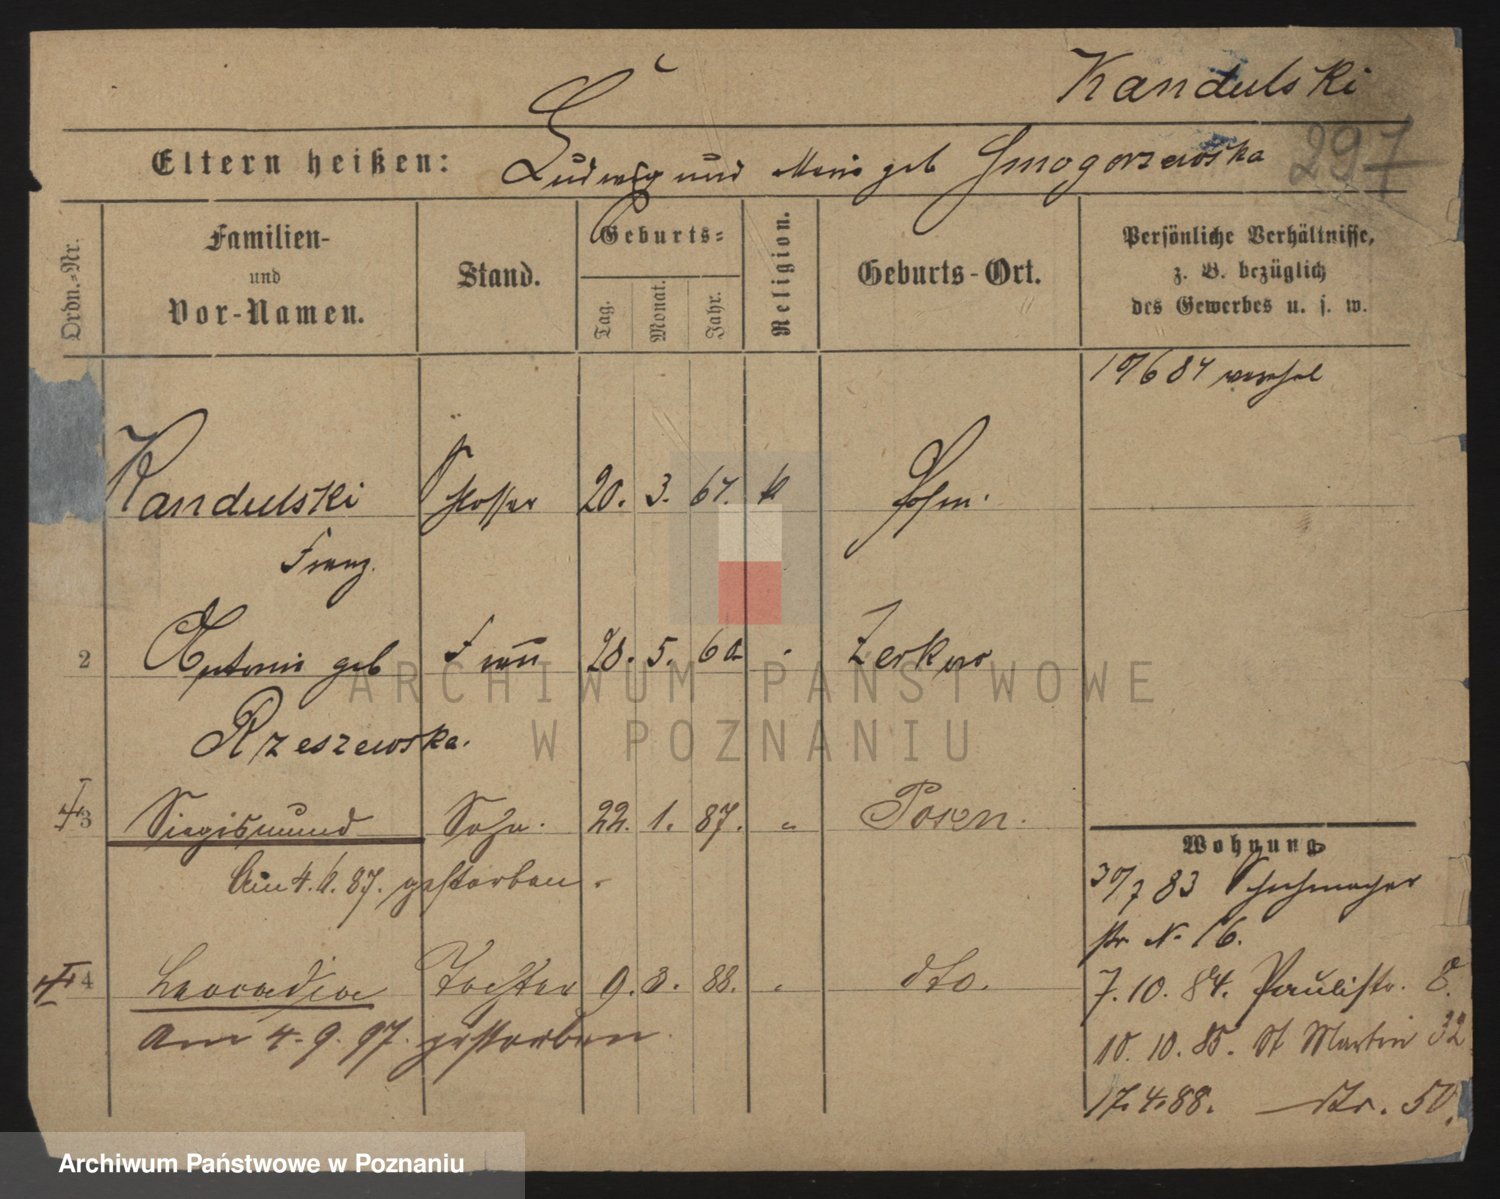 Kandulski
297
Eltern heißen: Ludwig und Marie geb Smogorzewska
Ordn.-Nr.
Familien-
und
Vor-Namen.
Stand.
Geburts-
Tag.
Monat.
Jahr.
Religion.
Geburts-Ort.
Persönliche Verhältnisse,
z. B. bezüglich
des Gewerbes u. s. w.
Kandulski Schlosser 20. 3. 61. k
Franz.
2 Antonie geb Frau 20. 5. 60 Zerkow
Rzeszewska.
3 Siegismund Sohn. 22. 1. 87. " Posen.
Am 4. 6. 87. gestorben.
4 Leocadia Tochter 9. 3. 88. dto.
Am 4. 9. 97. gestorben.
Wohnung
30/7 83 Schuhmacher
str N. 16.
7. 10. 84. Paulistr. 8.
10. 10. 85. St Martin 32
17. 4. 88. dto. 50.
ARCHIWUM PAŃSTWOWE
W POZNANIU
Archiwum Państwowe w Poznaniu